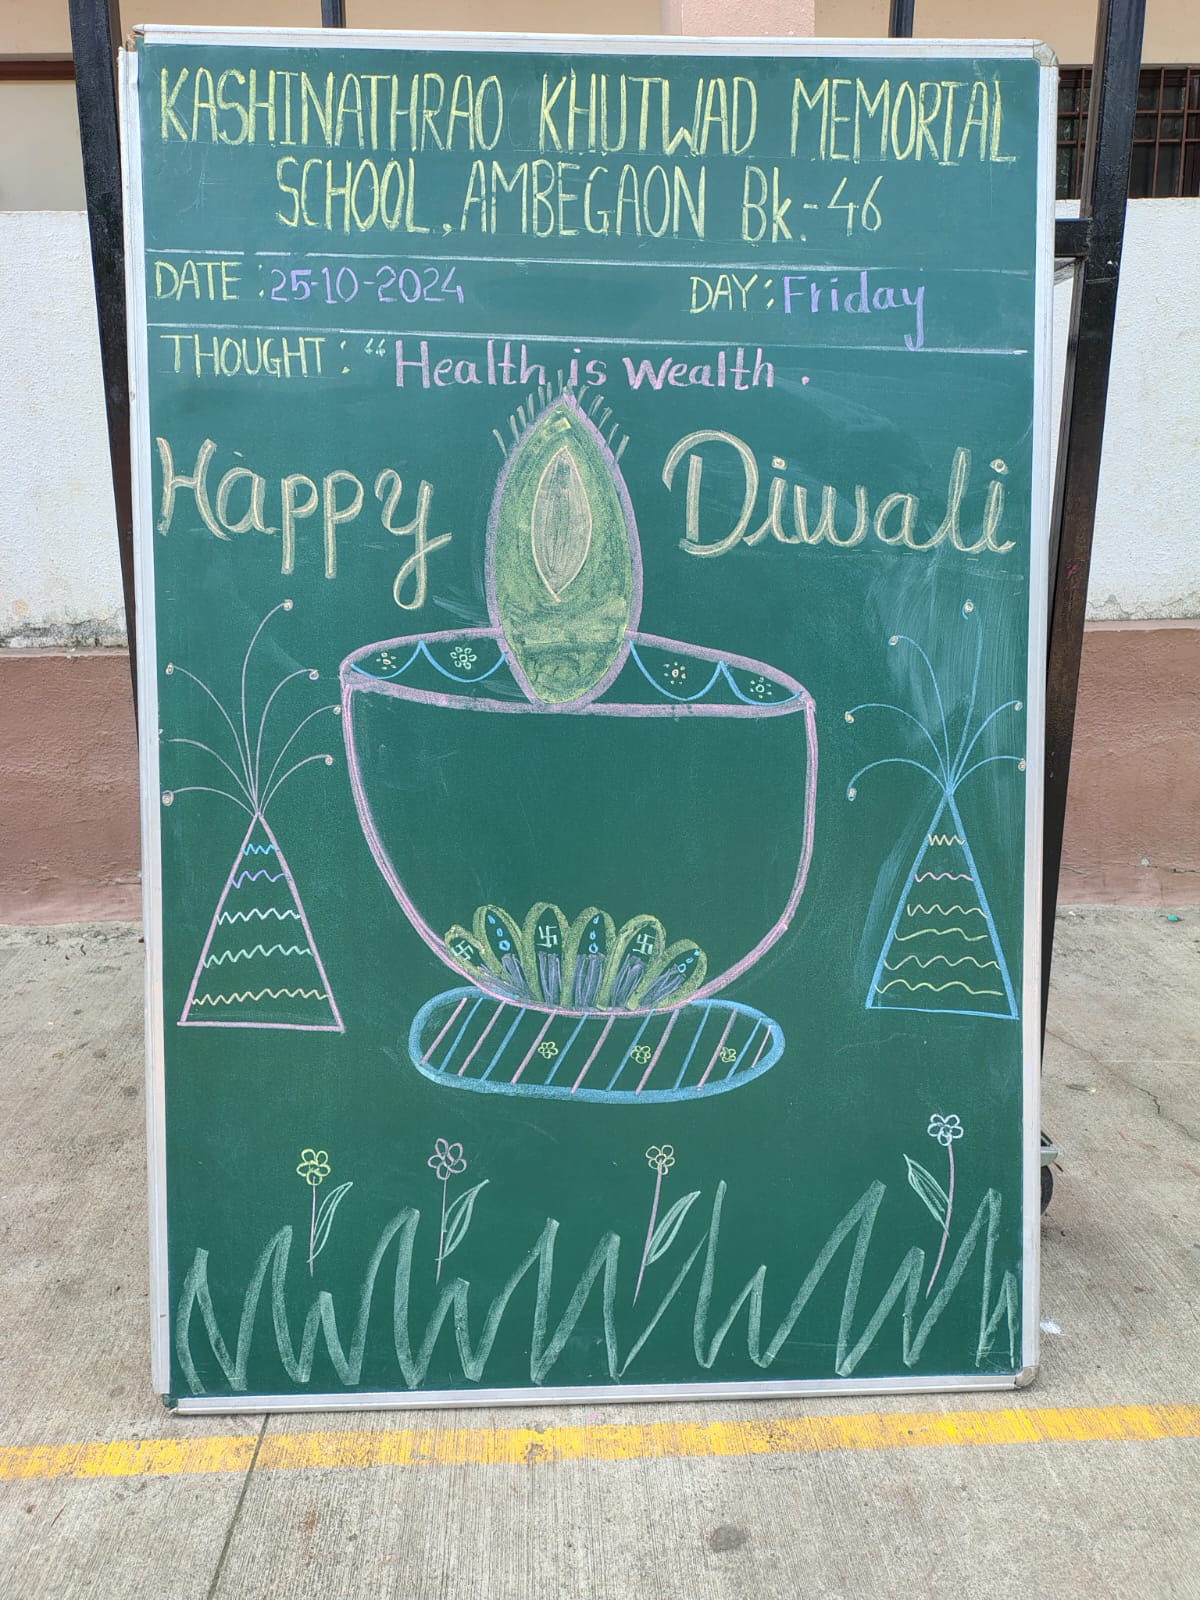 KASHINATHRAO KHUTWAD MEMORIAL
SCHOOL, AMBEGAON Bk:-46
DATE : 25-10-2024 DAY : Friday
THOUGHT : “Health is wealth .
Happy Diwali